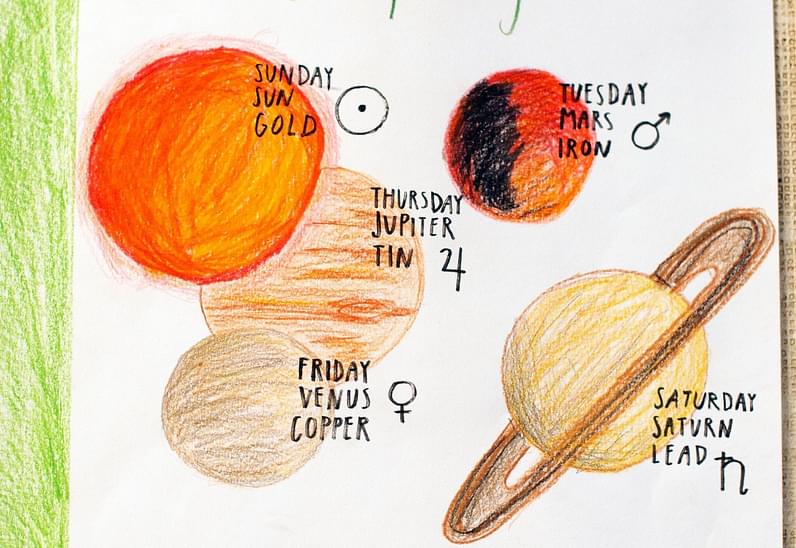 SUNDAY
SUN
GOLD
TUESDAY
MARS
IRON
THURSDAY
JUPITER
TIN
FRIDAY
VENUS
COPPER
SATURDAY
SATURN
LEAD